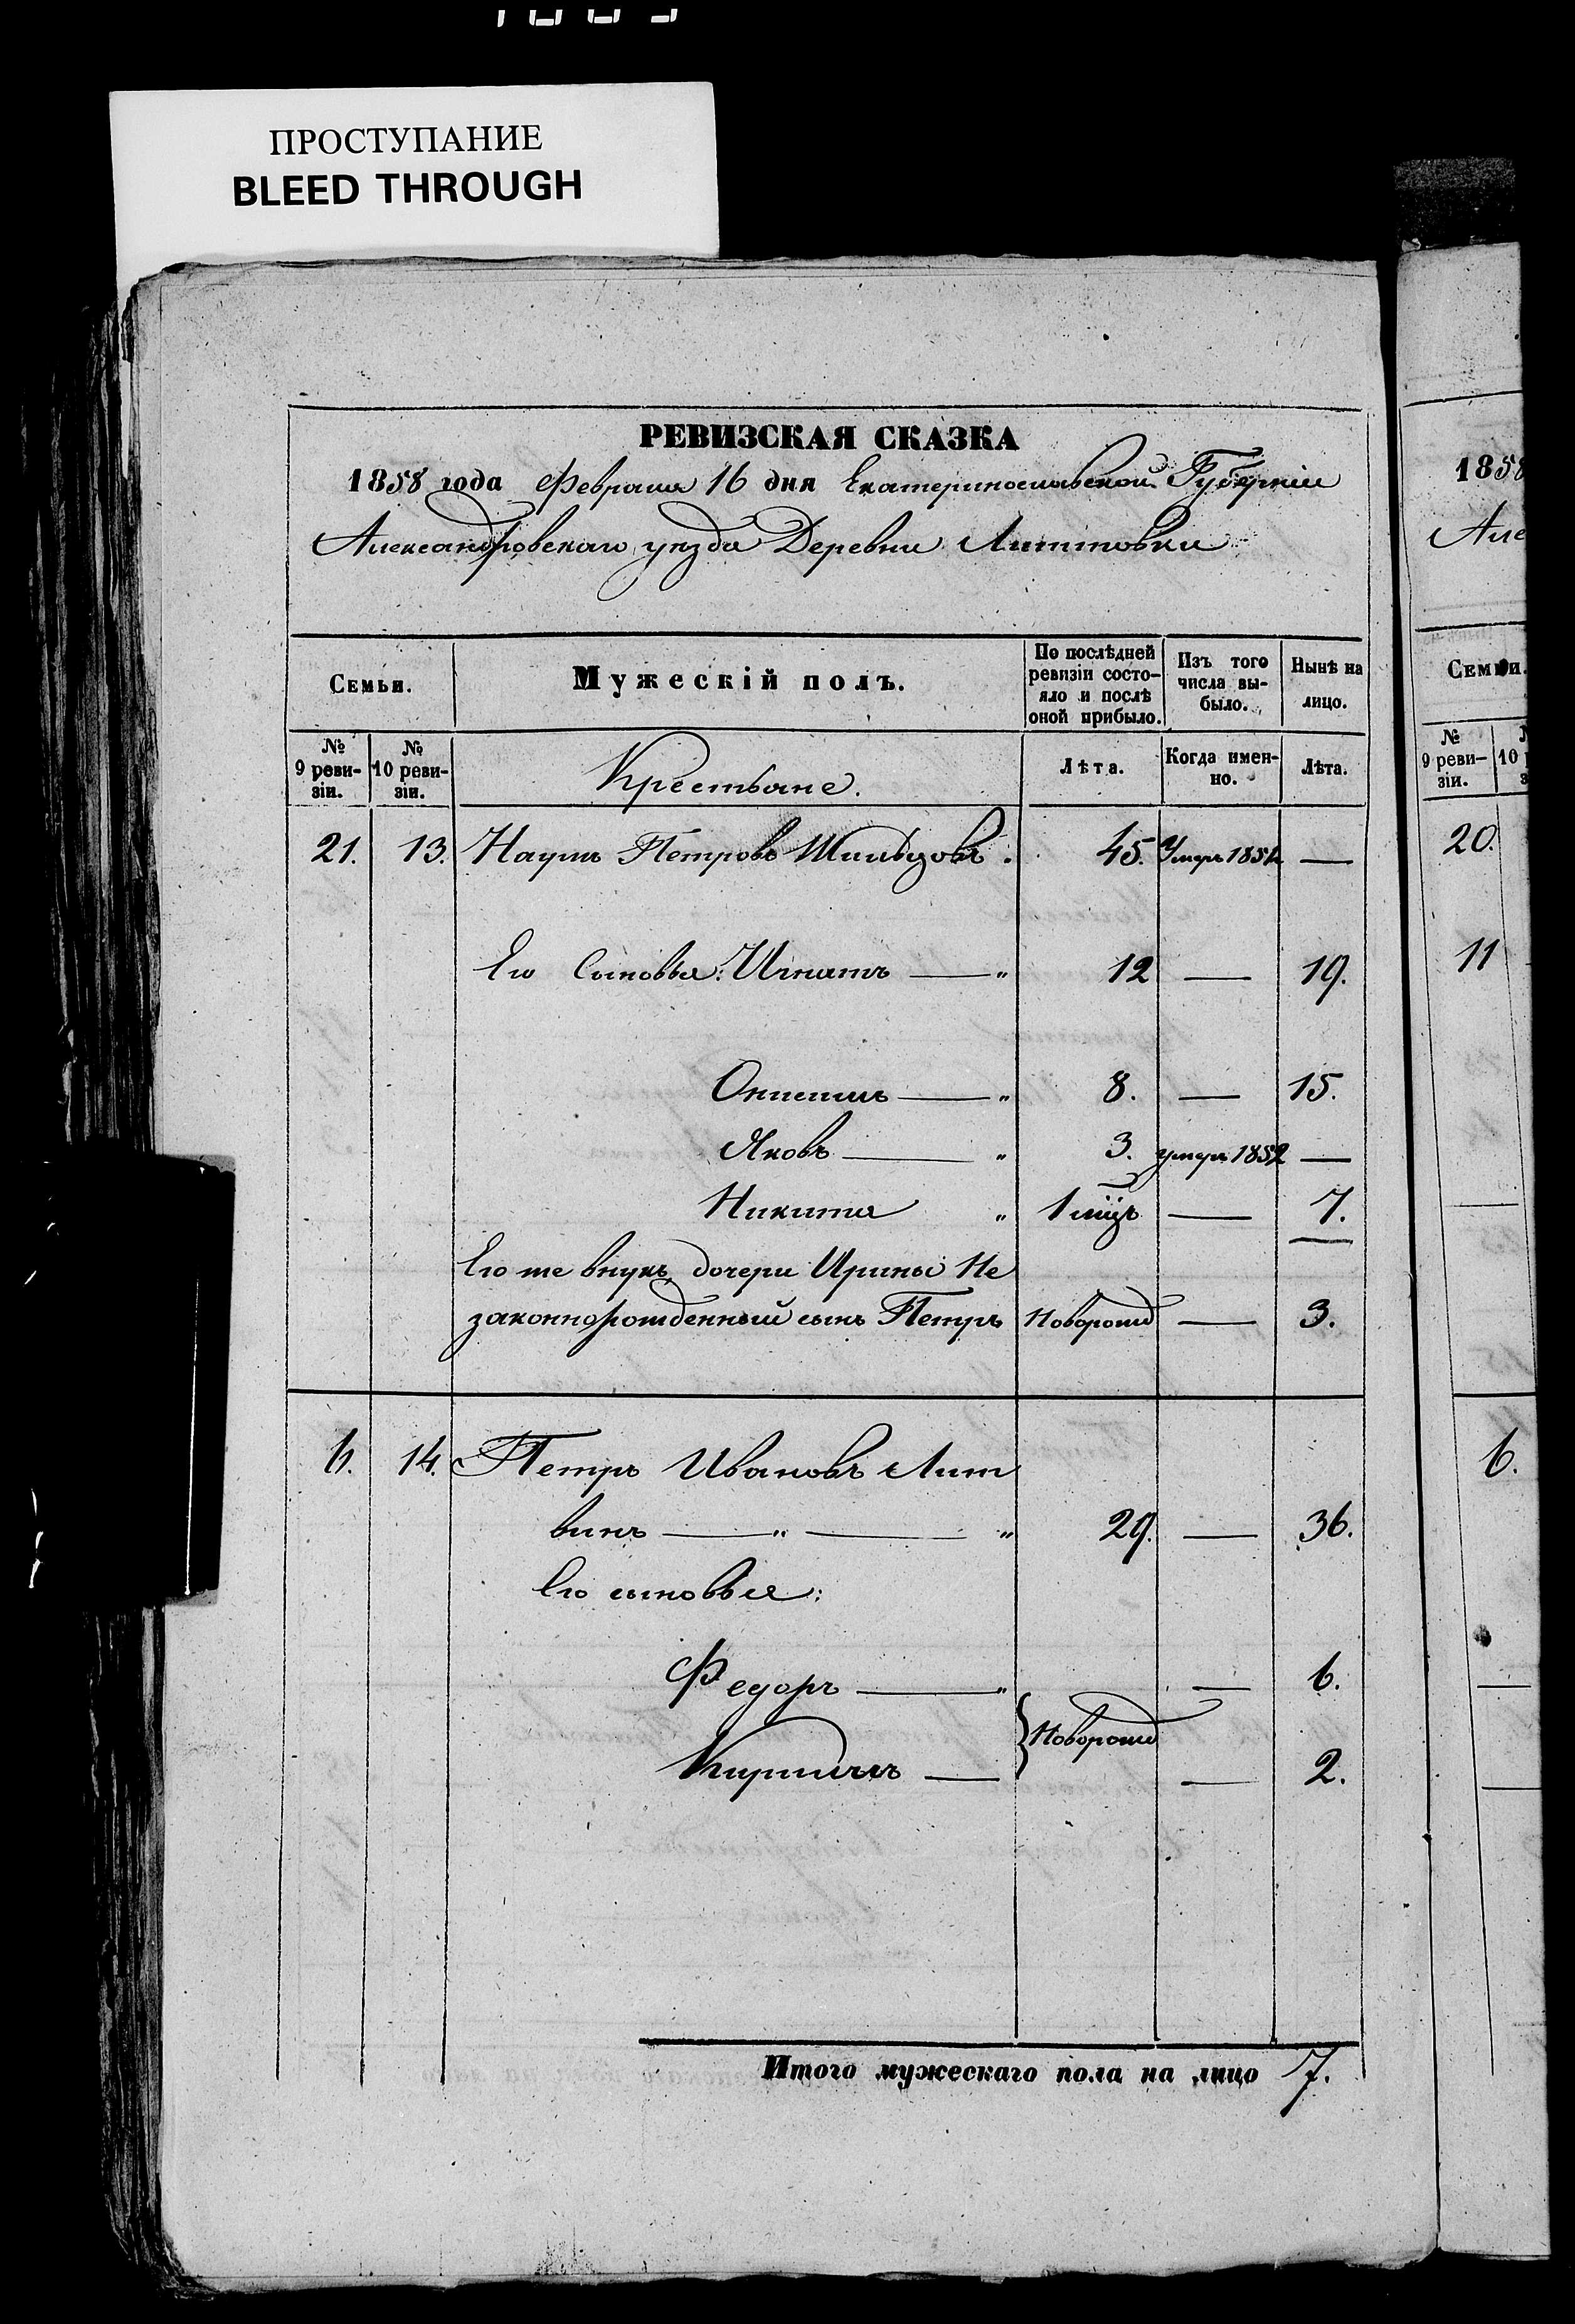 ПРОСТУПАНИЕ
BLEED THROUGH
РЕВИЗСКАЯ СКАЗКА
1858 года Февраля 16 дня Екатеринославской Губерніи
Александровскаго уезда Деревни
Семьи.
Мужескій полъ.
По послѣдней ревизіи состояло и послѣ оной прибыло.
Изъ того числа выбыло.
Нынѣ на лицо.
№ 9 ревизіи.
№ 10 ревизіи.
Крестьяне.
Лѣта.
Когда именно.
Лѣта.
21. 13. Наумъ Петровъ 45. Умеръ —
Его Сыновья: Игнатъ — " 12 — 19.
Онисимъ — " 8. — 15.
Яковъ — " 3. умеръ 1852 —
Никита " 1 мцъ — 7.
Его же внукъ дочери Ирины Не
законнорожденный сынъ Петръ Новорожд — 3.
6. 14. Петръ Ивановъ Лит
винъ — " — " 29. — 36.
Его сыновья:
Федоръ — " — 6.
} Новорожд
— 2.
Итого мужескаго пола на лицо 7.
1858
Але
Семьи.
№ 9 ревизіи.
10
20.
11
6.